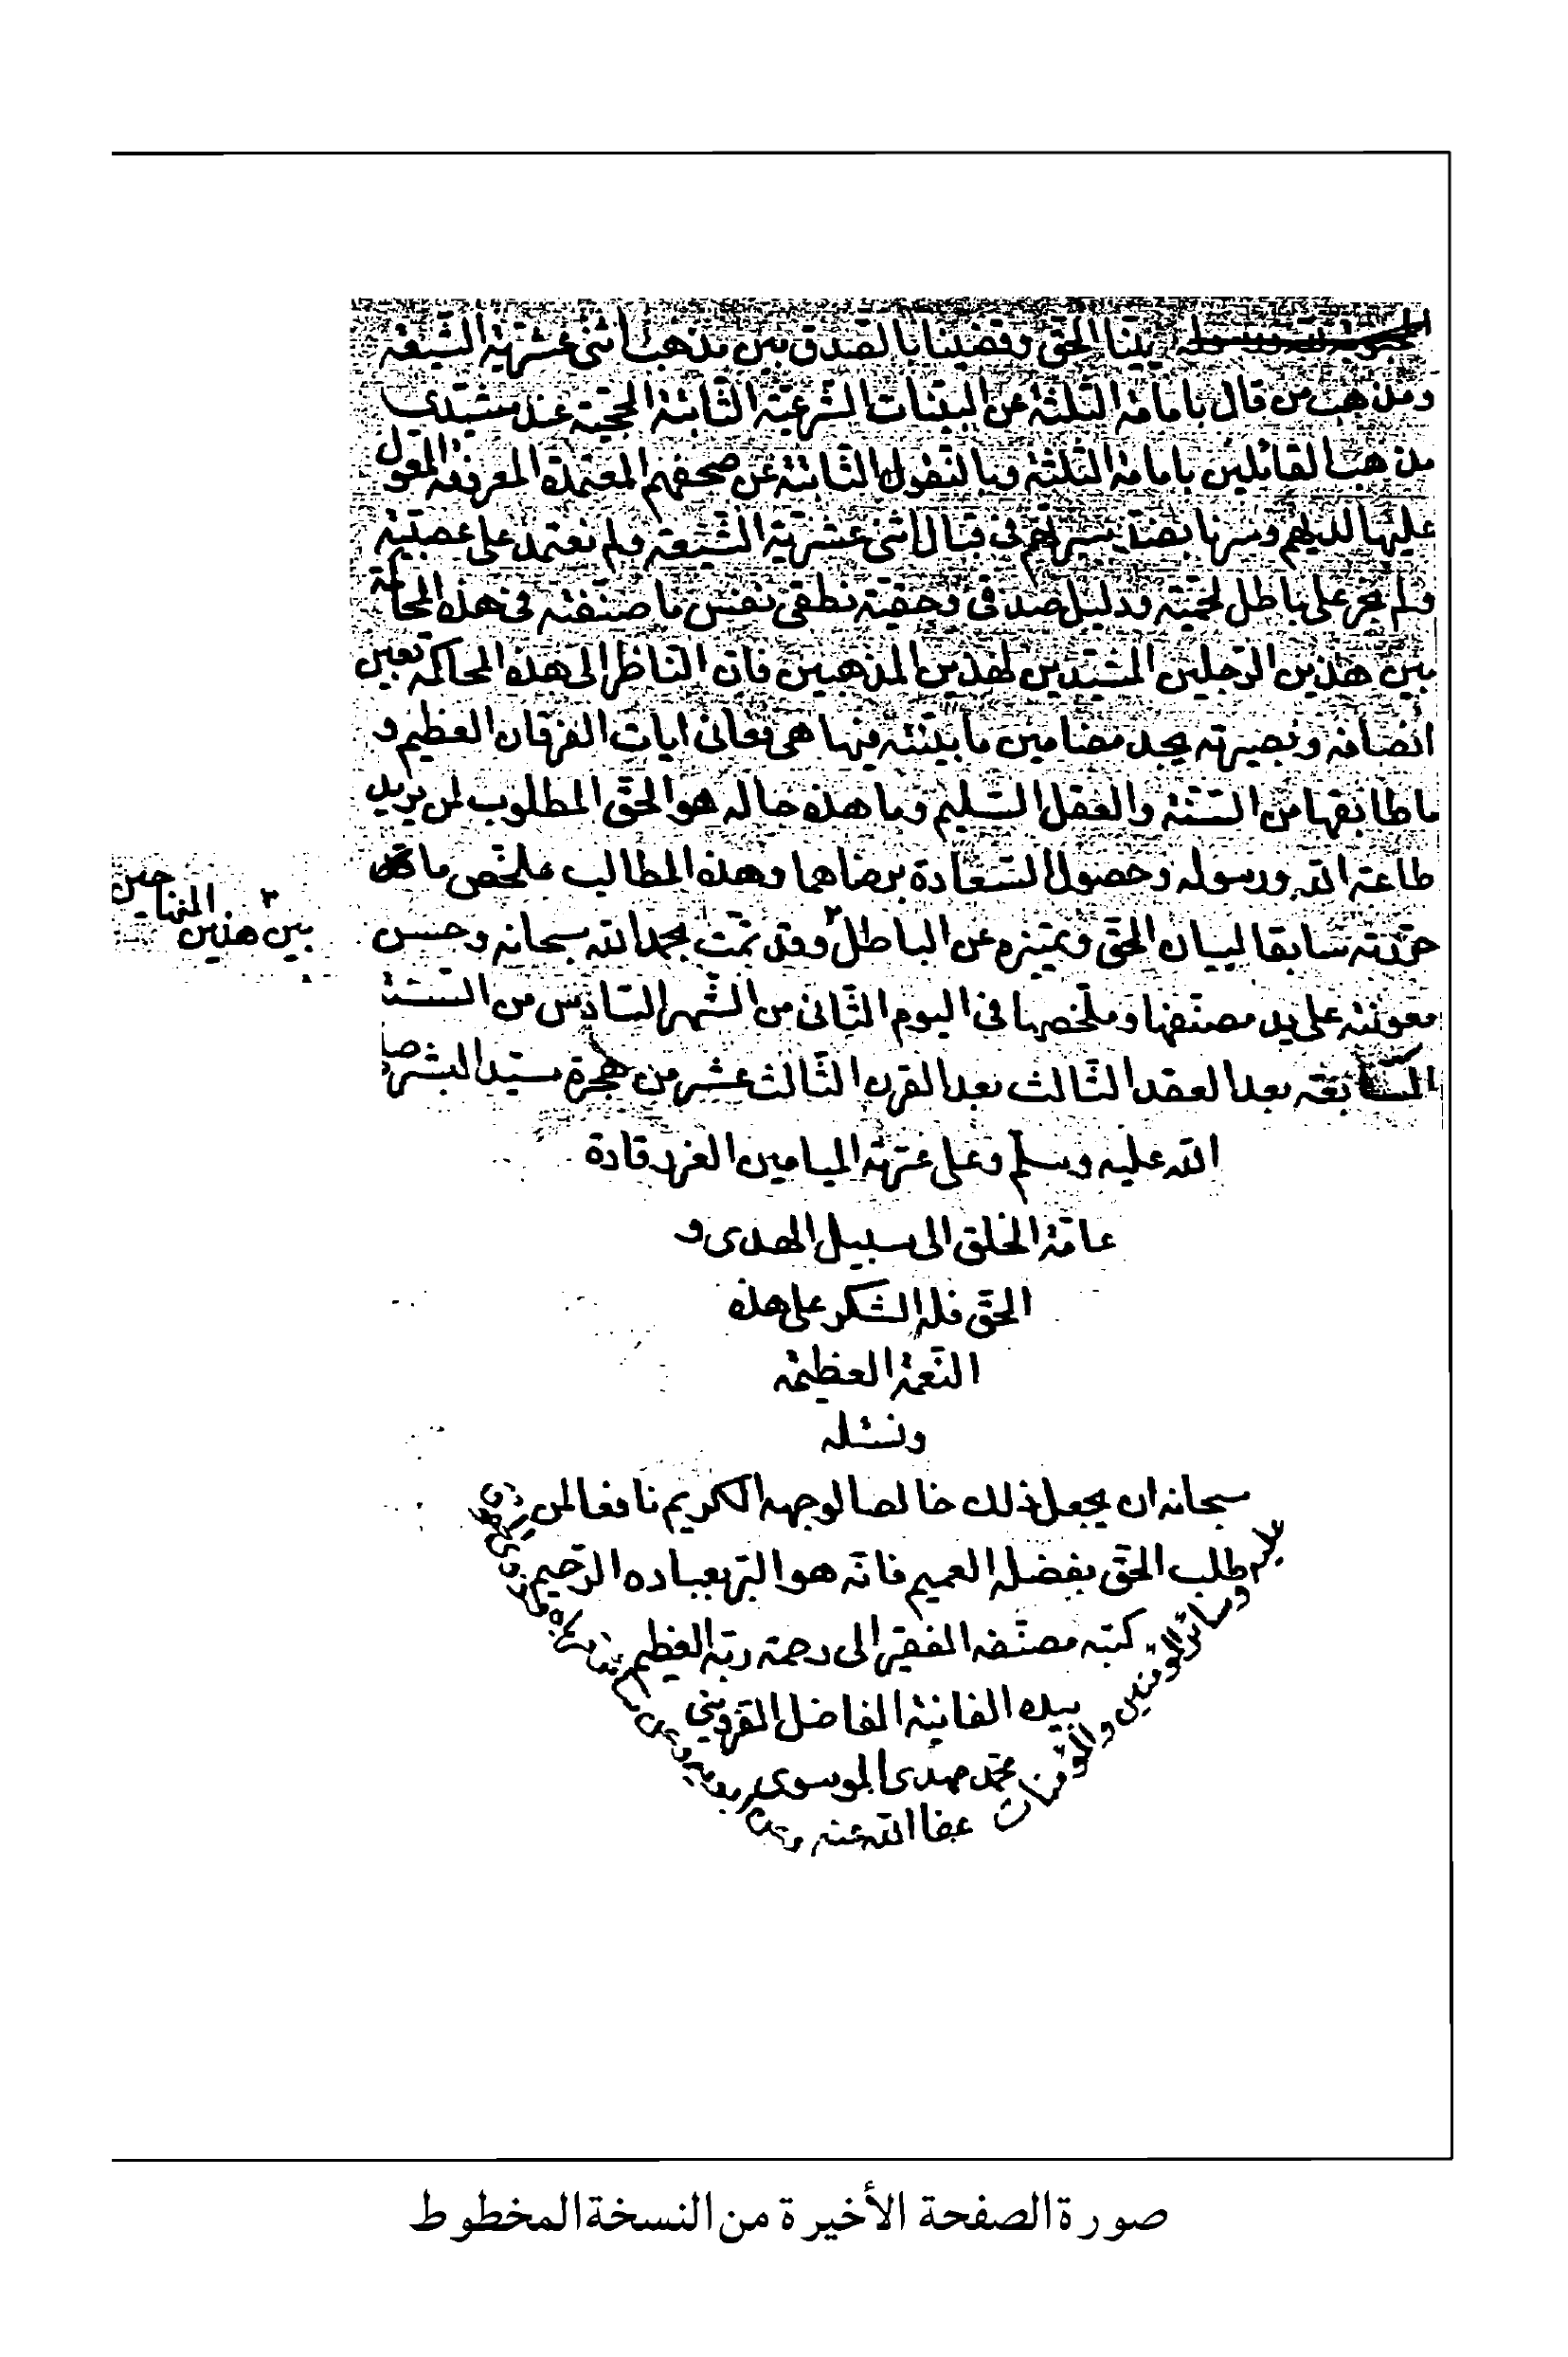 بيّنا الحق وقضينا بالصدق بين مذهب اثنى عشرية الشيعة
ومذهب من قال بامامة الثلثة عن البينات الشرعية الثابتة الحجية عند مشيدى
مذهب القائلين بامامة الثلثة وبالنقول الثابتة عن صحفهم المعتمدة المعروفة المعول
عليها لديهم وسرنا بضد سيرتهم فى قبال الاثنى عشرية الشيعة ولم نعتمد على عصبية
ولم نجر على باطل لحمية ودليل صدقى وحقية نطقى نفس ما صنفته فى هذه المحاكمة
بين هذين الرجلين المشيدين لهذين المذهبين فان الناظر الى هذه المحاكمة بعين
انصافه وبصيرته يجد مضامين ما بينته فيها هى معانى ايات الفرقان العظيم و
ما طابقها من السنة والعقل السليم وما هذه حاله هو الحق المطلوب لمن يريد
طاعة الله ورسوله وحصول السعادة برضاهما وهذه المطالب ملخص ما
حررته سابقا لبيان الحق وتميزه عن الباطل ٢ وقد تمت بحمد الله سبحانه وحسن
٢ المنهاجين
بين هذين
معونته على يد مصنفها وملخصها فى اليوم الثانى من الشهر السادس من السنة
السابعة بعد العقد الثالث بعد القرن الثالث عشر من هجرة سيد البشر صلى
الله عليه وسلم وعلى عترته الميامين الغرر قادة
عامة الخلق الى سبيل الهدى و
الحق فله الشكر على هذه
النعمة العظيمة
ونسئله
سبحانه ان يجعل ذلك خالصا لوجهه الكريم نافعا لمن
طلب الحق بفضله العميم فانه هو البر بعباده الرحيم
كتبه مصنفه الفقير الى رحمة ربه العظيم
بيده الفانية الفاضل القزوينى
محمد مهدى الموسوى
عفا الله عنه
وسائر المؤمنين والمؤمنات
صورة الصفحة الأخيرة من النسخة المخطوط